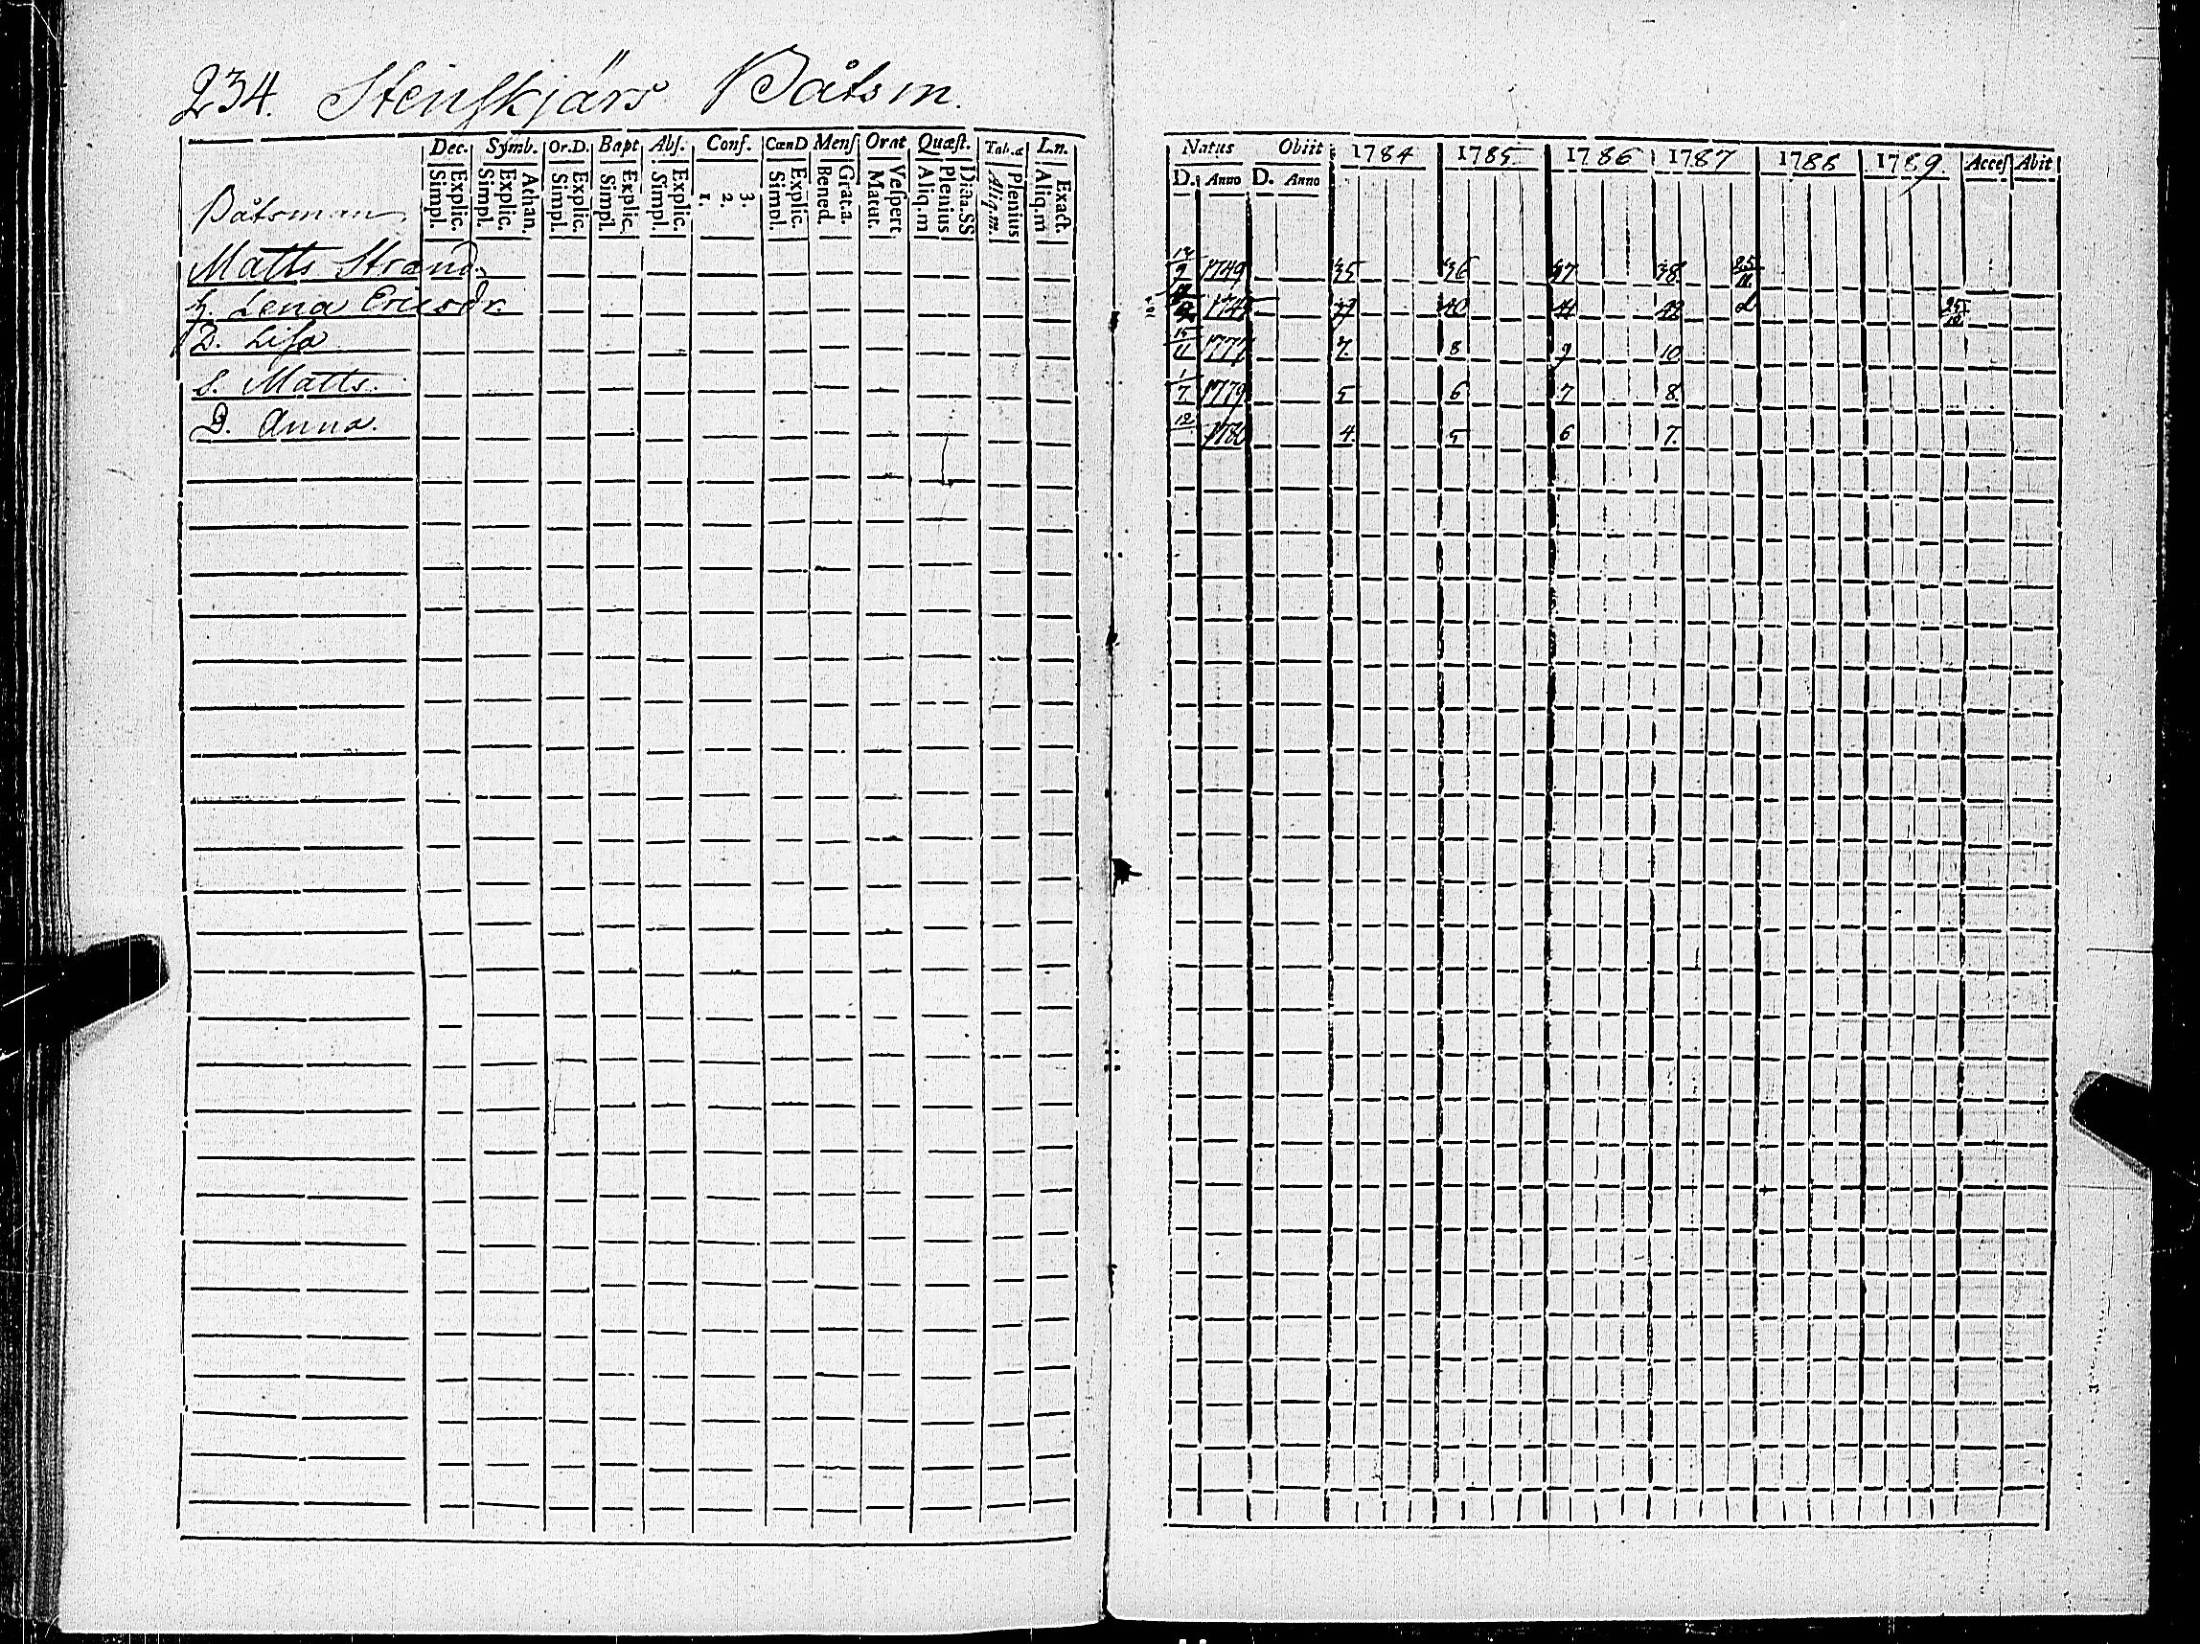 234. Stenskjärs Båtsm.
Dec. Symb. Or.D. Bapt Abs. Conf. CœnD Mens Orat Quæst. Tab.æ L.n.
Explic. Simpl. Athan. Explic. Simpl. Explic. Simpl. Explic. Simpl. Explic. Simpl. 3. 2. 1. Explic. Simpl. Grat.a. Bened. Vespert Matut. Dicta.SS Plenius Aliq.m Plenius Aliq.m. Exact. Aliq.m
Båtsman
Matts Strand.
h. Lena Ericsdr.
D. Lisa
S. Matts.
D. Anna.
Natus Obiit 1784 1785 1786 1787 1788 1789. Acces Abit
D. Anno D. Anno
9 1749 35 36 37 38 25/11
174 39 40 41 42 d 25/10
15/11 1777 7. 8 9 10
1/7 1779 5 6 7 8
12 1780 4. 5 6 7.